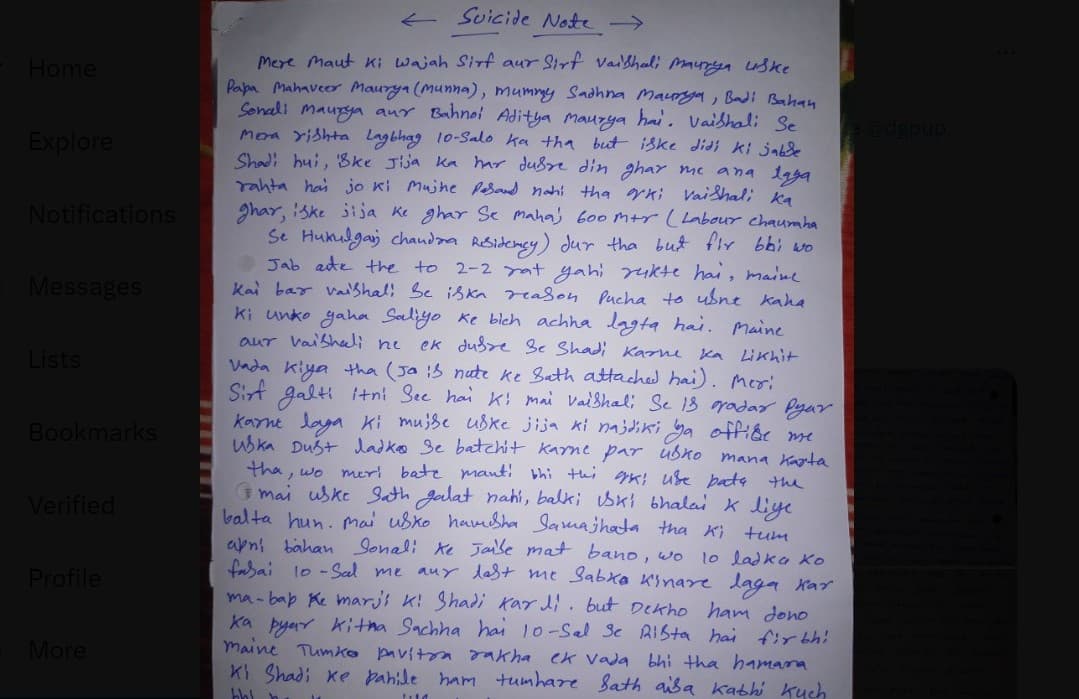 Home
Explore
Notifications
Messages
Lists
Bookmarks
Verified
Profile
More
@dgpup
← Suicide Note →
Mere Maut Ki Wajah Sirf aur Sirf Vaishali Maurya uske
Papa Mahaveer Maurya (Munna), mummy Sadhna Maurya, Badi Bahan
Sonali Maurya aur Bahnoi Aditya Maurya hai. Vaishali Se
Mera rishta Lagbhag 10-Salo Ka tha but iske didi Ki jabse
Shadi hui, iske Jija Ka har dusre din ghar me ana laga
rahta hai jo Ki Mujhe Pasand nahi tha qki Vaishali Ka
ghar, iske jija Ke ghar Se Mahaj 600 mtr (Labour chauraha
Se Hukulganj chandra Residency) dur tha but fir bhi wo
Jab ate the to 2-2 rat yahi rukte hai, maine
Kai bar Vaishali Se iska reason Pucha to usne Kaha
Ki unko yaha Saliyo Ke bich achha lagta hai. Maine
aur Vaishali ne ek dusre Se Shadi Karne Ka Likhit
Vada Kiya tha (Jo is note Ke Sath attached hai). Meri
Sirf galti itni See hai Ki mai Vaishali Se is qadar Pyar
Karne laga Ki mujse uske jija Ki najdiki ya office me
uska Dust ladko Se batchit Karne par usko mana Karta
tha, wo meri bate manti bhi thi qki use pata tha
mai uske Sath galat nahi, balki uski bhalai K liye
balta hun. Mai usko hamesha Samajhata tha Ki tum
apni bahan Sonali Ke Jaise mat bano, wo 10 ladko Ko
fasai 10-Sal me aur last me Sabko Kinare laga Kar
ma-bap Ke marji Ki Shadi Kar li. but Dekho ham dono
Ka Pyar Kitna Sachha hai 10-Sal Se Rista hai fir bhi
maine Tumko pavitra rakha ek Vada bhi tha hamara
Ki Shadi Ke Pahile ham tumhare Sath aisa Kabhi Kuch
bhi